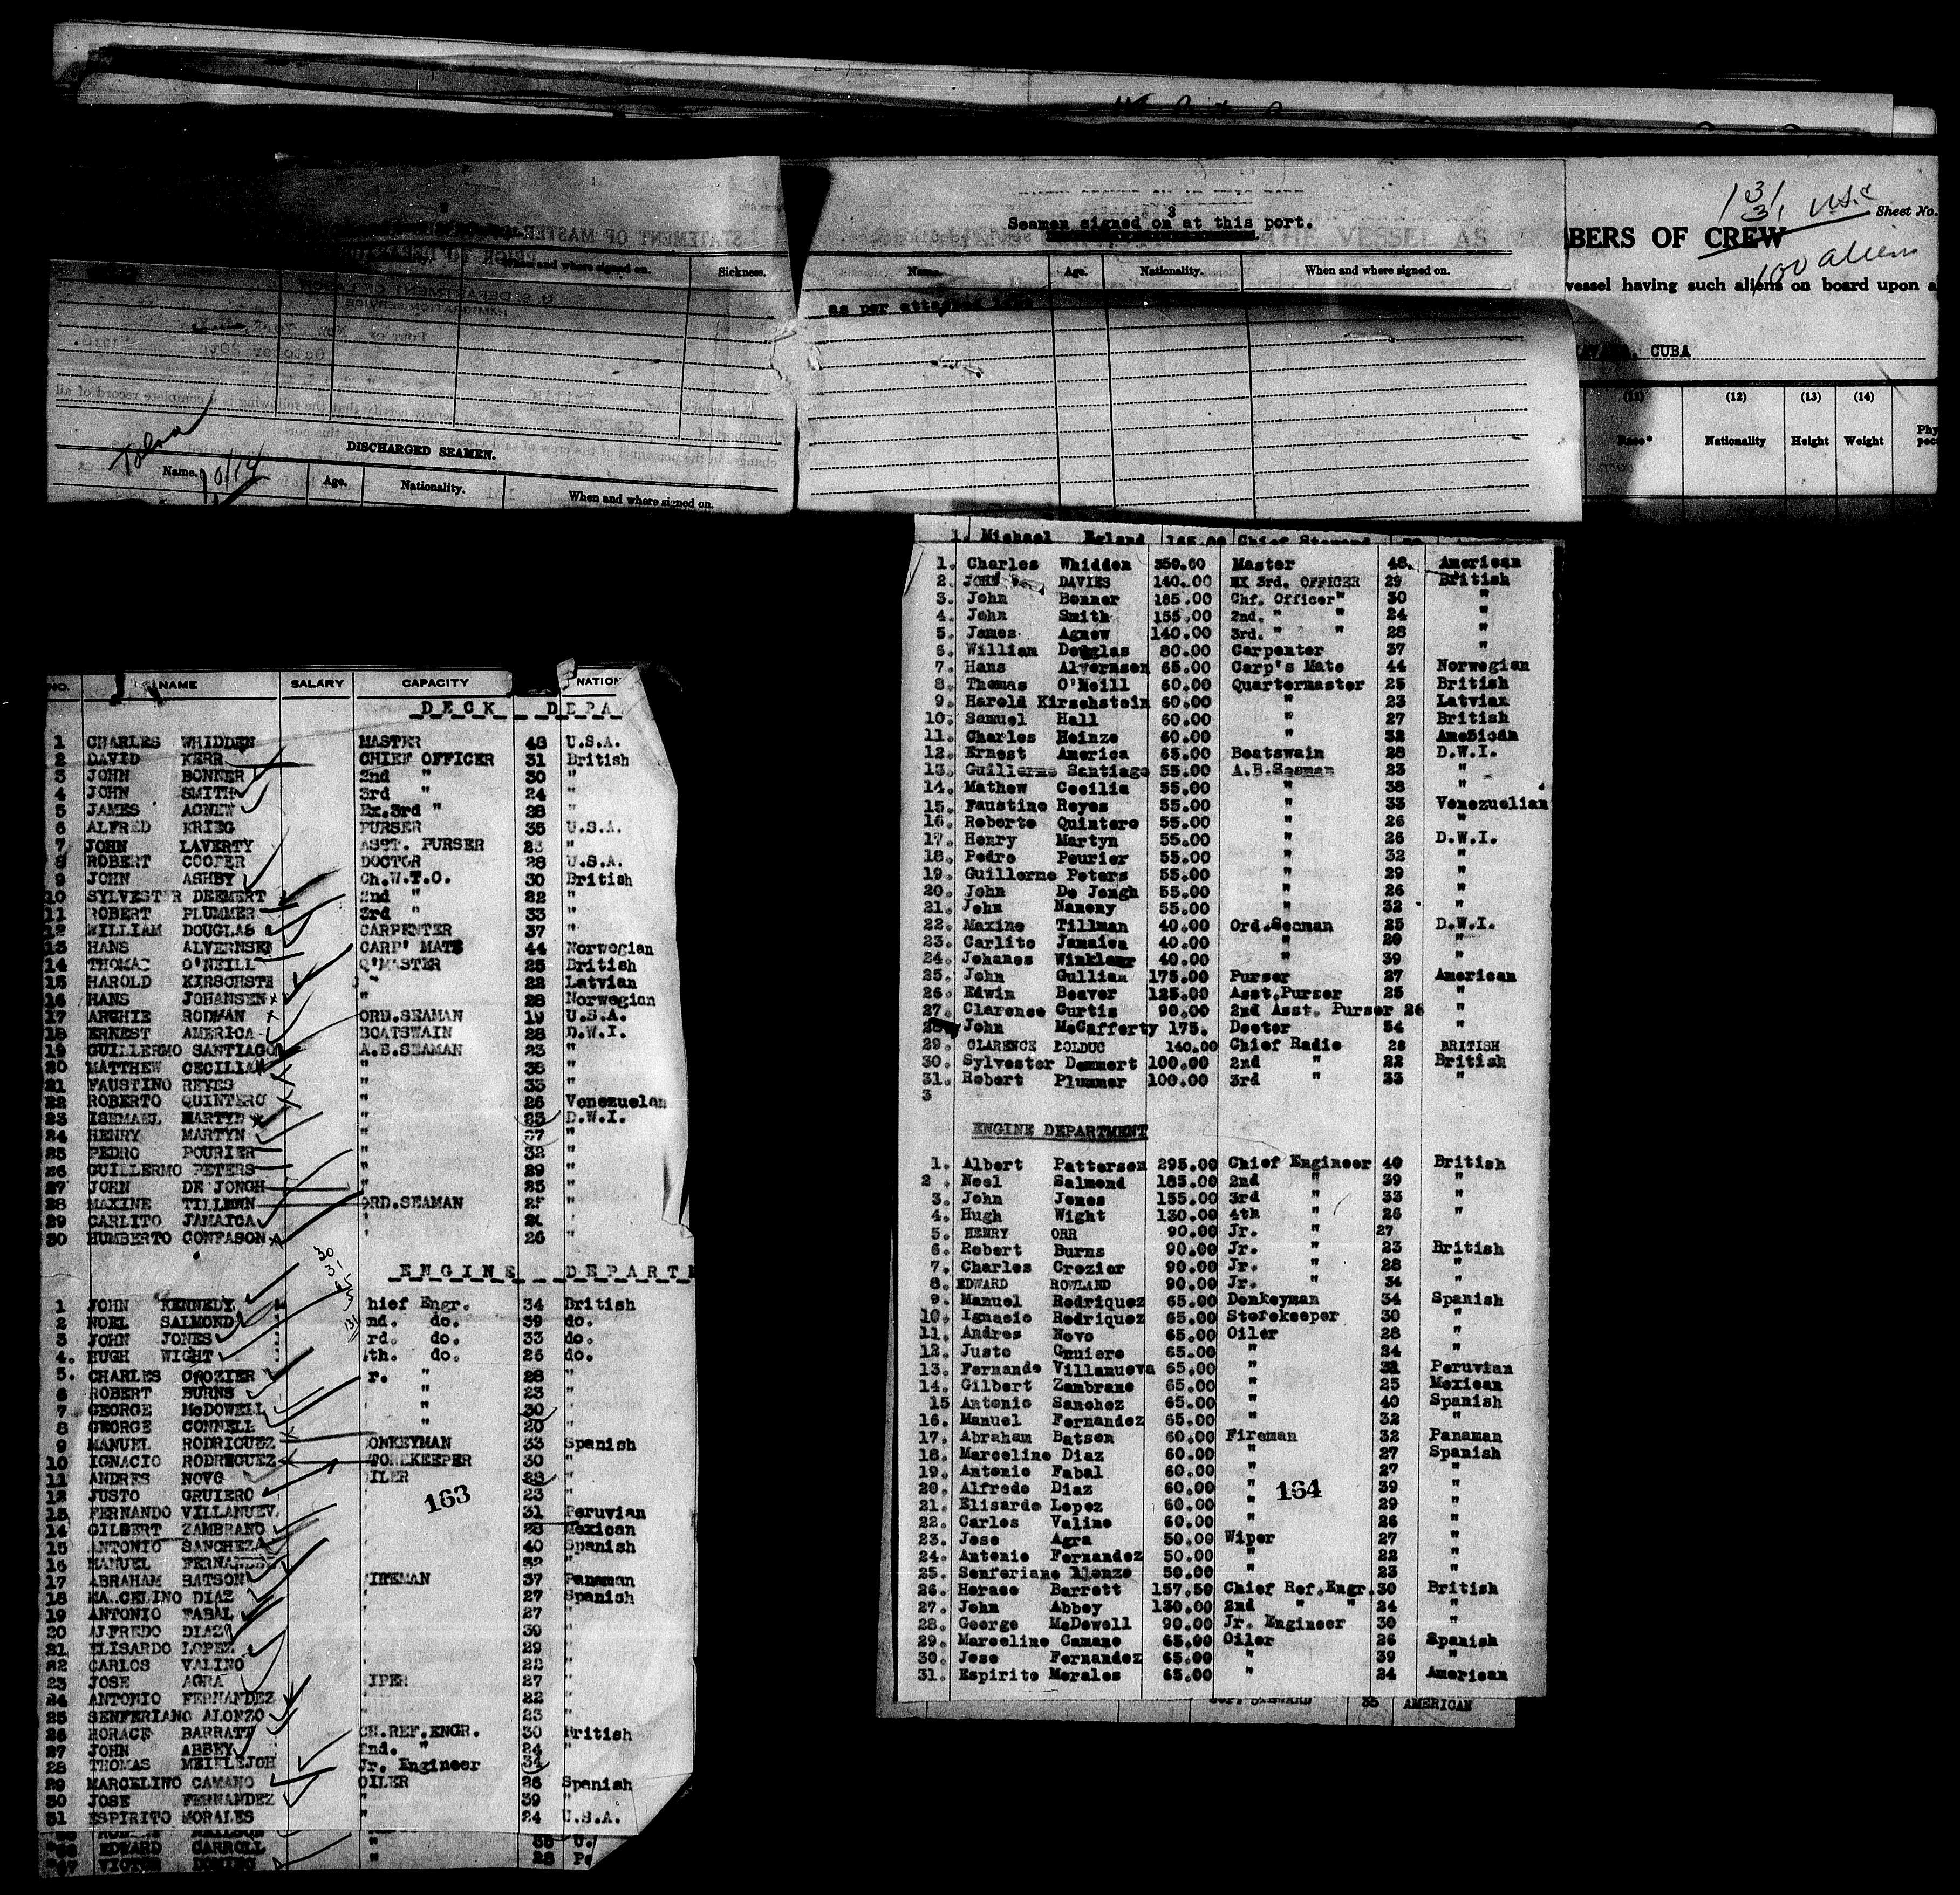 Seamen signed on at this port.
When and where signed on. Sickness.
Name. Age. Nationality. When and where signed on.
as per
DISCHARGED SEAMEN.
Name. Age. Nationality. When and where signed on.
10/19
131 Sheet No.
BERS OF CREW
100 alien
vessel having such aliens on board upon a
CUBA
(11) (12) (13) (14)
Race* Nationality Height Weight
NO. NAME SALARY CAPACITY NATION
DECK DEPA
1 CHARLES WHIDDEN MASTER 48 U.S.A.
2 DAVID KERR CHIEF OFFICER 31 British
3 JOHN BONNER 2nd " 30 "
4 JOHN SMITH 3rd " 24 "
5 JAMES AGNEW Ex.3rd " 28 "
6 ALFRED KRIEG PURSER 35 U.S.A.
7 JOHN LAVERTY ASST. PURSER 23 "
8 ROBERT COOPER DOCTOR 28 U.S.A.
9 JOHN ASHBY Ch.W.T.O. 30 British
10 SYLVESTER DEEMERT 2nd " 22 "
11 ROBERT PLUMMER 3rd " 33 "
12 WILLIAM DOUGLAS CARPENTER 37 "
13 HANS ALVERNSEN CARP' MATE 44 Norwegian
14 THOMAS O'NEILL Q'MASTER 25 British
15 HAROLD KIRSCHSTE " 22 Latvian
16 HANS JOHANSEN " 28 Norwegian
17 ARCHIE RODMAN ORD.SEAMAN 19 U.S.A.
18 ERNEST AMERICA BOATSWAIN 28 D.W.I.
19 GUILLERMO SANTIAGO A.B.SEAMAN 23 "
20 MATTHEW CECILIA " 38 "
21 FAUSTINO REYES " 33 "
22 ROBERTO QUINTERO " 26 Venezuelan
23 ISHMAEL MARTYN " 23 D.W.I.
24 HENRY MARTYN " 27 "
25 PEDRO POURIER " 32 "
26 GUILLERMO PETERS " 29 "
27 JOHN DE JONGH " 25 "
28 MAXINE TILLMAN ORD.SEAMAN "
29 CARLITO JAMAICA " "
30 HUMBERTO CONFASON " 26 "
30
31
ENGINE DEPARTM
1 JOHN KENNEDY hief Engr. 34 British
2 NOEL SALMOND nd. do. 39 do.
3 JOHN JONES rd. do. 33 do.
4. HUGH WIGHT th. do. 26 do.
5. CHARLES CROZIER r. " 28 "
6 ROBERT BURNS " 23 "
7 GEORGE McDOWELL " 30 "
8 GEORGE CONNELL " 20 "
9 MANUEL RODRIGUEZ ONKEYMAN 33 Spanish
10 IGNACIO RODREGUEZ STOREKEEPER 30 "
11 ANDRES NOVO OILER 28 "
12 JUSTO GRUIERO 23 "
13 FERNANDO VILLANUEV. 31 Peruvian
14 GILBERT ZAMBRANO 28 Mexican
15 ANTONIO SANCHEZ 40 Spanish
16 MANUEL FERNANDEZ 32 "
17 ABRAHAM BATSON FIREMAN 37 Panaman
18 MARCELINO DIAZ 27 Spanish
19 ANTONIO FABAL 27 "
20 ALFREDO DIAZ 39 "
21 ELISARDO LOPEZ 29 "
22 CARLOS VALINO 22 "
23 JOSE AGRA WIPER 27 "
24 ANTONIO FERNANDEZ 22 "
25 SENFERIANO ALONZO 23 "
26 HORACE BARRATT CH.REF.ENGR. 30 British
27 JOHN ABBEY 2nd. " 24 "
28 THOMAS MEIFLEJOH Jr. Engineer 34
29 MARCELINO CAMANO OILER 26 Spanish
30 JOSE FERNANDEZ " 39 "
31 ESPIRITO MORALES " 24 U.S.A.
163
EDWARD CARROLL " 35 U.
VICTOR " 28 Pe
1. Michael Egland Chief Steward
1. Charles Whidden 350.00 Master 48 American
2. JOHN DAVIES 140.00 EX 3rd. OFFICER 29 British
3. John Bonner 185.00 Chf. Officer" 30 "
4. John Smith 155.00 2nd. " " 24 "
5. James Agnew 140.00 3rd. " " 28 "
6. William Douglas 80.00 Carpenter 37 "
7. Hans Alvernsen 65.00 Carp's Mate 44 Norwegian
8. Thomas O'Neill 60.00 Quartermaster 25 British
9. Harold Kirschstein 60.00 " 23 Latvian
10. Samuel Hall 60.00 " 27 British
11. Charles Heinze 60.00 " 32 American
12. Ernest America 65.00 Boatswain 28 D.W.I.
13. Guillermo Santiago 55.00 A.B.Seaman 23 "
14. Mathew Cecilia 55.00 " 38 "
15. Faustino Reyes 55.00 " 33 Venezuelian
16. Roberto Quintero 55.00 " 26 "
17. Henry Martyn 55.00 " 26 D.W.I.
18. Pedro Pourier 55.00 " 32 "
19. Guillermo Peters 55.00 " 29 "
20. John De Jongh 55.00 " 26 "
21. John Naneny 55.00 " 32 "
22. Maxine Tillman 40.00 Ord.Seaman 25 D.W.I.
23. Carlito Jamaica 40.00 " 20 "
24. Johanes Winklaar 40.00 " 39 "
25. John Gulliam 175.00 Purser 27 American
26. Edwin Beaver 125.00 Asst.Purser 25 "
27. Clarence Curtis 90.00 2nd Asst. Purser 26 "
28. John McCafferty 175. Doctor 54 "
29. CLARENCE BOLDUC 140.00 Chief Radio 28 BRITISH
30. Sylvester Demmert 100.00 2nd " 22 British
31. Robert Plummer 100.00 3rd " 33 "
3
ENGINE DEPARTMENT
1. Albert Patterson 295.00 Chief Engineer 40 British
2. Noel Salmond 185.00 2nd " 39 "
3. John Jones 155.00 3rd " 33 "
4. Hugh Wight 130.00 4th " 26 "
5. HENRY ORR 90.00 Jr. " 27
6. Robert Burns 90.00 Jr. " 23 British
7. Charles Crozier 90.00 Jr. " 28 "
8. EDWARD ROWLAND 90.00 Jr. " 34 "
9. Manuel Rodriquez 65.00 Donkeyman 34 Spanish
10. Ignacio Rodriquez 65.00 Storekeeper 30 "
11. Andres Novo 65.00 Oiler 28 "
12. Justo Gruiero 65.00 " 24 "
13. Fernando Villanueva 65.00 " 32 Peruvian
14. Gilbert Zambrano 65.00 " 25 Mexican
15 Antonio Sanchez 65.00 " 40 Spanish
16. Manuel Fernandez 65.00 " 32 "
17. Abraham Batson 60.00 Fireman 32 Panaman
18. Marceline Diaz 60.00 " 27 Spanish
19. Antonio Fabal 60.00 " 27 "
20. Alfredo Diaz 60.00 " 39 "
21. Elisardo Lopez 60.00 " 29 "
22. Carlos Valino 60.00 " 26 "
23. Jose Agra 50.00 Wiper 27 "
24. Antonio Fernandez 50.00 " 22 "
25. Senferiano Alonzo 50.00 " 23 "
26. Horace Barrett 157.50 Chief Ref.Engr. 30 British
27. John Abbey 130.00 2nd " " 24 "
28. George McDowell 90.00 Jr. Engineer 30 "
29. Marceline Camano 65.00 Oiler 26 Spanish
30. Jose Fernandez 65.00 " 39 "
31. Espirito Morales 65.00 " 24 American
164
STEWARD 35 AMERICAN